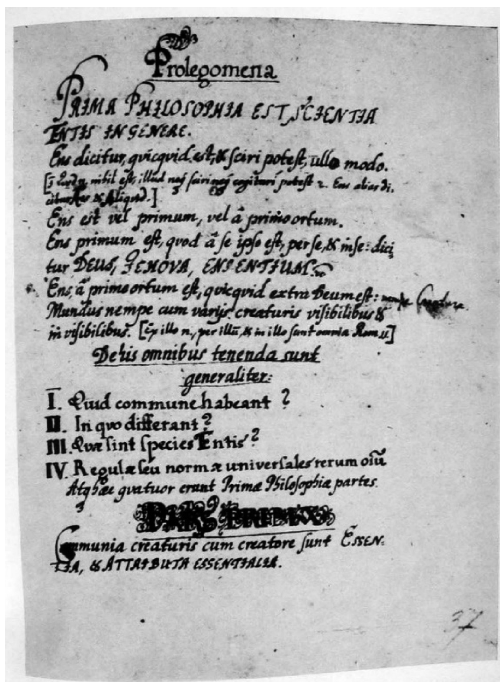 Prolegomena
PRIMA PHILOSOPHIA EST, SCIENTIA
ENTIS IN GENERE.
Ens dicitur, qvicqvid est, & sciri potest, ullo modo.
nihil est, illud neq sciri neq cogitari potest 2. Ens alias di-
citur Res & Aliqvid.]
Ens est vel primum, vel â primo ortum.
Ens primum est, qvod â se ipso est, per se, & in se: dici
tur DEUS, JEHOVA, ENS ENTIUM.
Ens, â primo ortum est, qvicqvid extra Deum est:
Mundus nempe cum varijs creaturis visibilibus &
invisibilibus. [Ex illo n., per illū, & in illo sunt omnia Rom. 11]
De his omnibus tenenda sunt
generaliter:
I. Qvid commune habeant?
II. In qvo differant?
III. Qvæ sint species Entis?
IV. Regulæ seu normæ universales rerum oīū
Atq hæ qvatuor erunt Primæ Philosophiæ partes.
PARS PRIMA
Communia creaturis cum creatore sunt ESSEN-
TIA, & ATTRIBUTA ESSENTIALIA.
37